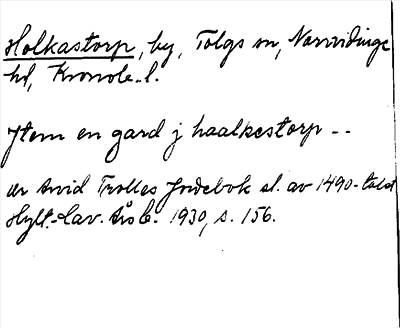 Holkastorp, by, Tolgs sn, Norrvidinge
hd, Kronob. l.
Jtem en gard j haalkestorp --
ur Arvid Trolles Jordebok sl. av 1490-talet
Hylt.-Cav. Årsb. 1930, s. 156.